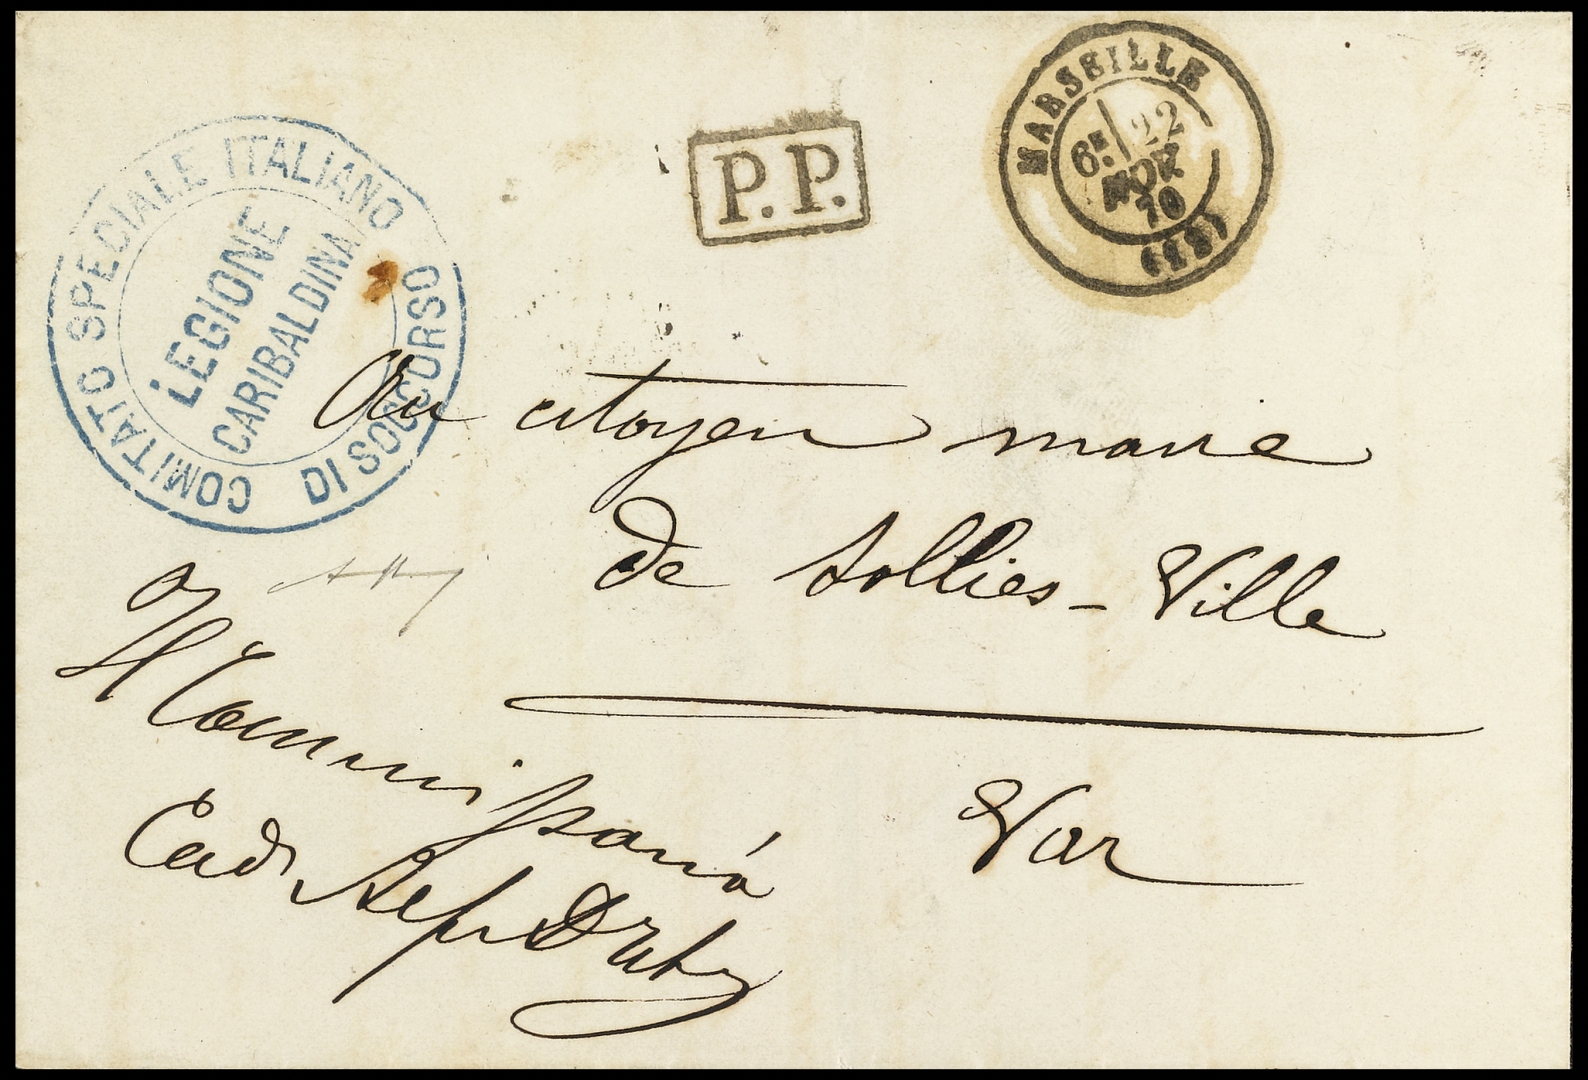 COMITATO SPECIALE ITALIANO DI SOCCORSO
LEGIONE
GARIBALDINA
P.P.
MARSEILLE
6E 22
NOV
70
(12)
Au citoyen maire
de Solliès-Ville
Var
Il Commissario